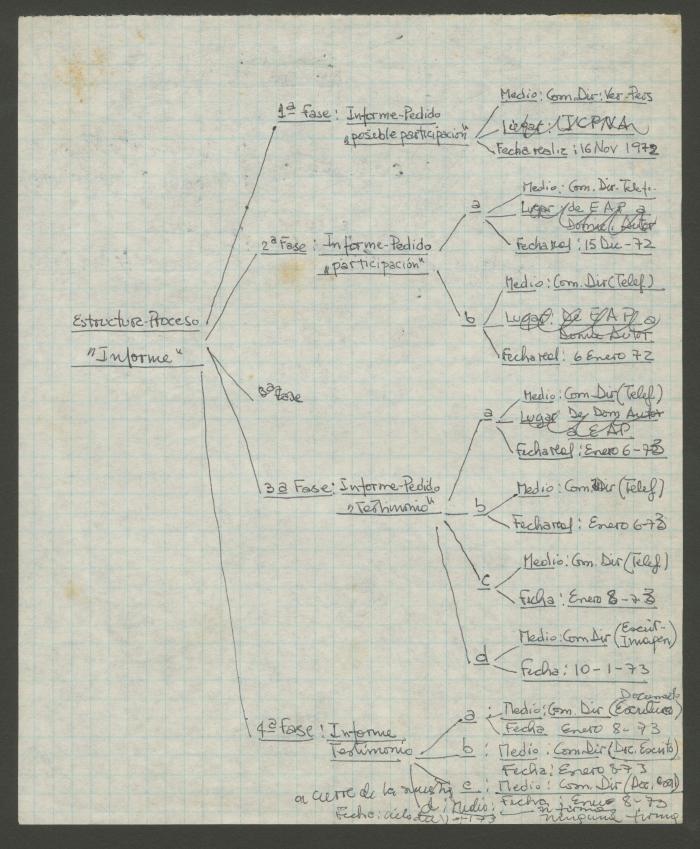 Medio: Com. Dir: Ver-Pers
1ª Fase: Informe-Pedido
"posible participación"
Lugar: ICPNA
Fecha realiz: 16 Nov 1972
a
Medio: Com. Dir. Telef.
Lugar de EAP a
Domic. Autor
Fecha real: 15 Dic-72
2ª Fase: Informe-Pedido
"participación"
b
Medio: Com. Dir (Telef)
Lugar: De EAP a
Domic Autor
Fecha real: 6 Enero 72
Estructura-Proceso
"Informe"
3ª Fase
a
Medio: Com. Dir (Telef)
Lugar De Dom Autor
a EAP
Fecha real: Enero 6-73
3ª Fase: Informe-Pedido
"Testimonio"
b
Medio: Com. Dir (Telef)
Fecha real: Enero 6-73
c
Medio: Com. Dir (Telef)
Fecha: Enero 8-73
d
Medio: Com Dir (Escrit-
Imagen)
Fecha: 10-1-73
4ª Fase: Informe
Testimonio
Documento
a: Medio: Com. Dir (Escritura)
Fecha Enero 8-73
b: Medio: Com Dir (Doc. Escrito)
Fecha: Enero 8-73
c: Medio: Com. Dir (Doc.
Fecha: Enero 8-73
al cierre de la muestra
d: Medio: ninguna forma
Fecha:
ninguna firma